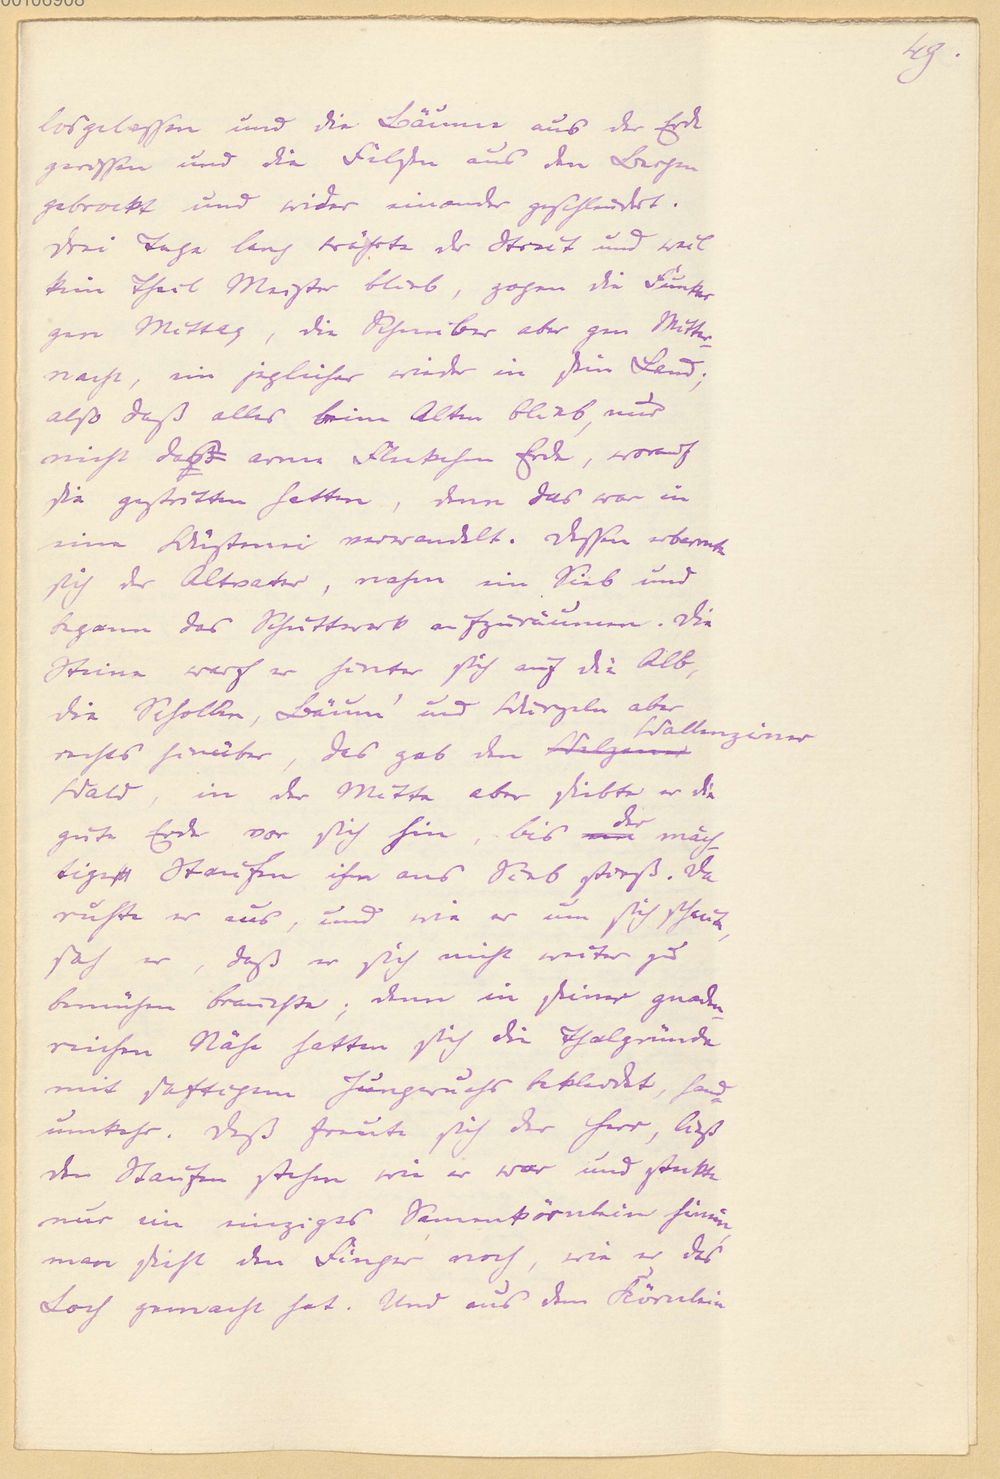 49.
losgelassen und die Bäume aus der Erde
gerissen und die Felsen aus den Bergen
gebrockt und wider einander geschleudert.
Drei Tage lang währte der Streit und weil
kein Theil Meister blieb, zogen die Junker
gen Mittag, die Schreiber aber gen Mitter-
nacht, ein jeglicher wieder in sein Land,
also daß alles beim Alten blieb, nur
nicht das arme Fleckchen Erde, worauf
sie gestritten hatten, denn das war in
eine Wüstenei verwandelt. Dessen erbarmte
sich der Altvater, nahm ein Sieb und
begann das Schuttwerk aufzuräumen. Die
Steine warf er hinter sich auf die Alb,
die Schollen, Bäum' und Wurzeln aber
rechts hinüber, das gab den Welzemer Wallenzinner
Wald, in der Mitte aber siebte er die
gute Erde vor sich hin, bis der mäch-
tige Staufen ihm ans Sieb stieß. Da
ruhte er aus, und wie er um sich schaute,
sah er, daß er sich nicht weiter zu
bemühen brauchte; denn in seiner gnaden-
reichen Nähe hatten sich die Thalgründe
mit saftigem Jungwuchs bekleidet, hand-
umkehr. Deß freute sich der Herr, ließ
den Staufen stehen wie er war und steckte
nur ein einziges Samenkörnlein hinein,
man sieht den Finger noch, wie er das
Loch gemacht hat. Und aus dem Körnlein